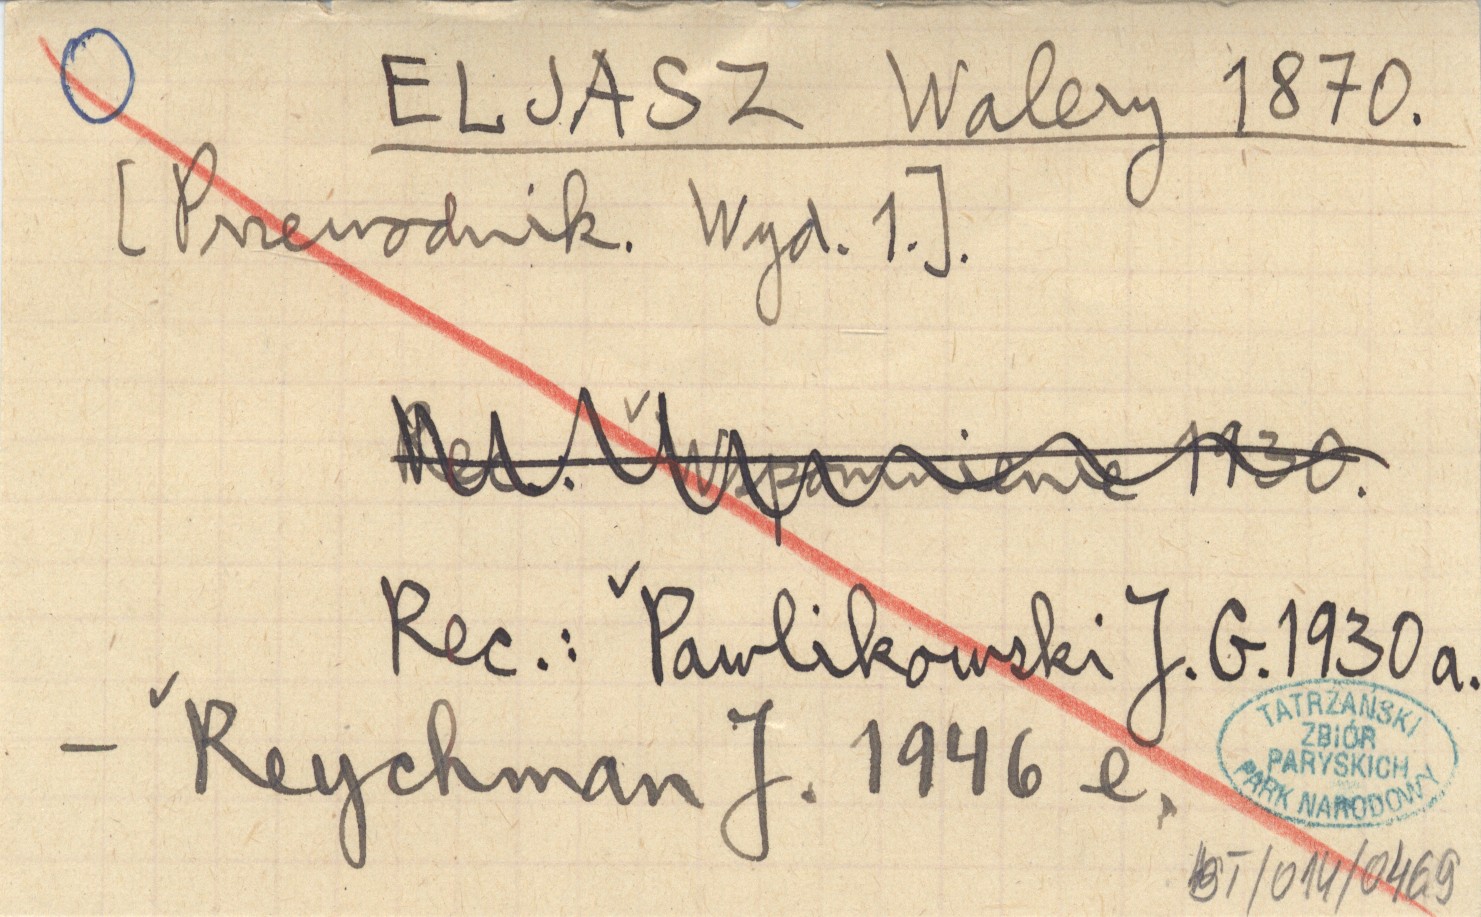 ELJASZ Walery 1870.
[Przewodnik. Wyd. 1.].
Rec.: Wspomnienie 1930.
Rec.: Pawlikowski J. G. 1930 a.
– Reychman J. 1946 e.
TATRZAŃSKI
ZBIÓR
PARYSKICH
PARK NARODOWY
/014/0469